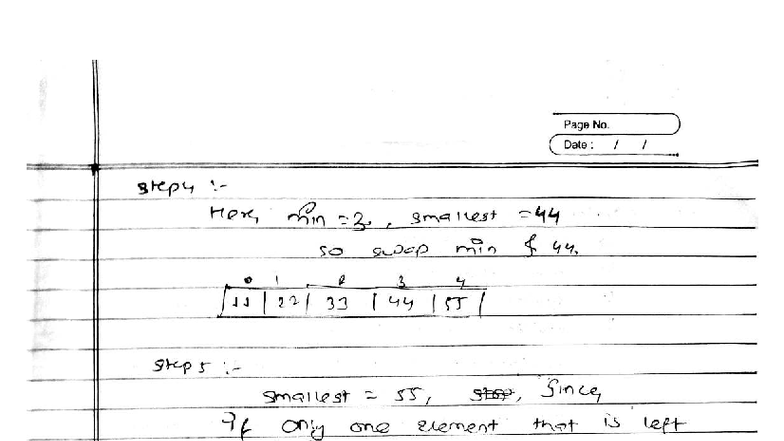 Page No.
Date : / /
Step 4 :-
Here, min = 3, smallest = 44
so swap min & 44.
0 1 2 3 4
11 | 22 | 33 | 44 | 55
Step 5 :-
smallest = 55, Since,
If only one element that is left